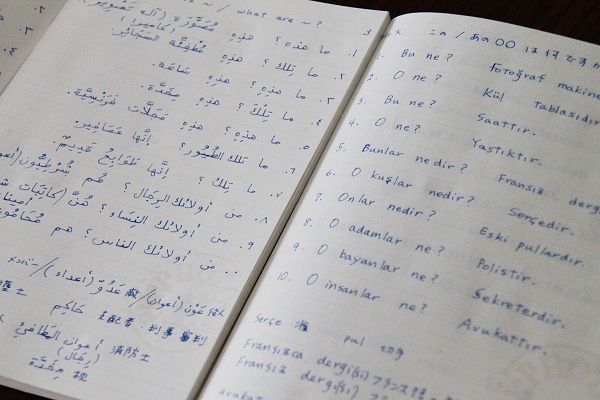 ~ / what are ~?
مُصَوِّرَة (آلة تَصْوِير)
(كاميرا)
١. ما هذِهِ؟ هذِهِ
مُطْفِئَةُ السَجَائِر.
٢. ما تِلكَ؟ هذِهِ
٣. ما هذِهِ؟ هذِهِ سَاعَة.
٤. ما تِلْكَ؟ هذِهِ مِخَدَّة.
٥. ما هذِهِ؟ هذِهِ مَجَلَّات فَرَنْسِيَّة.
٦. ما تلك الطُيُور؟ إنَّها عَصَافِير.
٧. ما تِلْكَ؟ إنَّها طَوَابِعُ قَدِيمَة.
٨. من أولائك الرِجَال؟ هُم شُرْطِيُّون
٩. من أولائك النِسَاء؟ هُنَّ كَاتِبَات
.. من أولائك الناس؟ هم مُحَامُو
عَوْن (أعوان) / عَدُوّ (أعداء) 敵
حَاكِم 支配者. 判事
أعوان الطَافِئ
(رِجَال) 消防士
مِخَدَّة 枕
この / あの〇〇 は何ですか
1. Bu ne? fotoğraf makine
2. O ne? Kül tablasıdır
3. Bu ne? Saattır.
4. O ne? Yastıktır.
5. Bunlar nedir? Fransız dergi
6. O kuşlar nedir? Serçedir.
7. Onlar nedir? Eski pullardır.
8. O adamlar ne? Polistir.
9. O bayanlar ne? Sekreterdir.
10. O insanlar ne? Avukattır.
serçe 雀 pul
Fransızca dergi(si) フランス語の
Fransız dergi(si) フランス
avukat